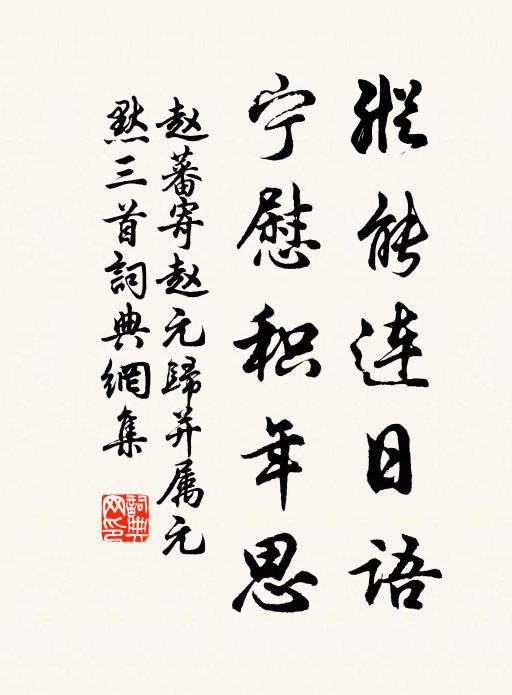 縱能连日語
宁慰积年思
赵蕃寄赵元歸并属元
默三首詞典網集
詞典网印